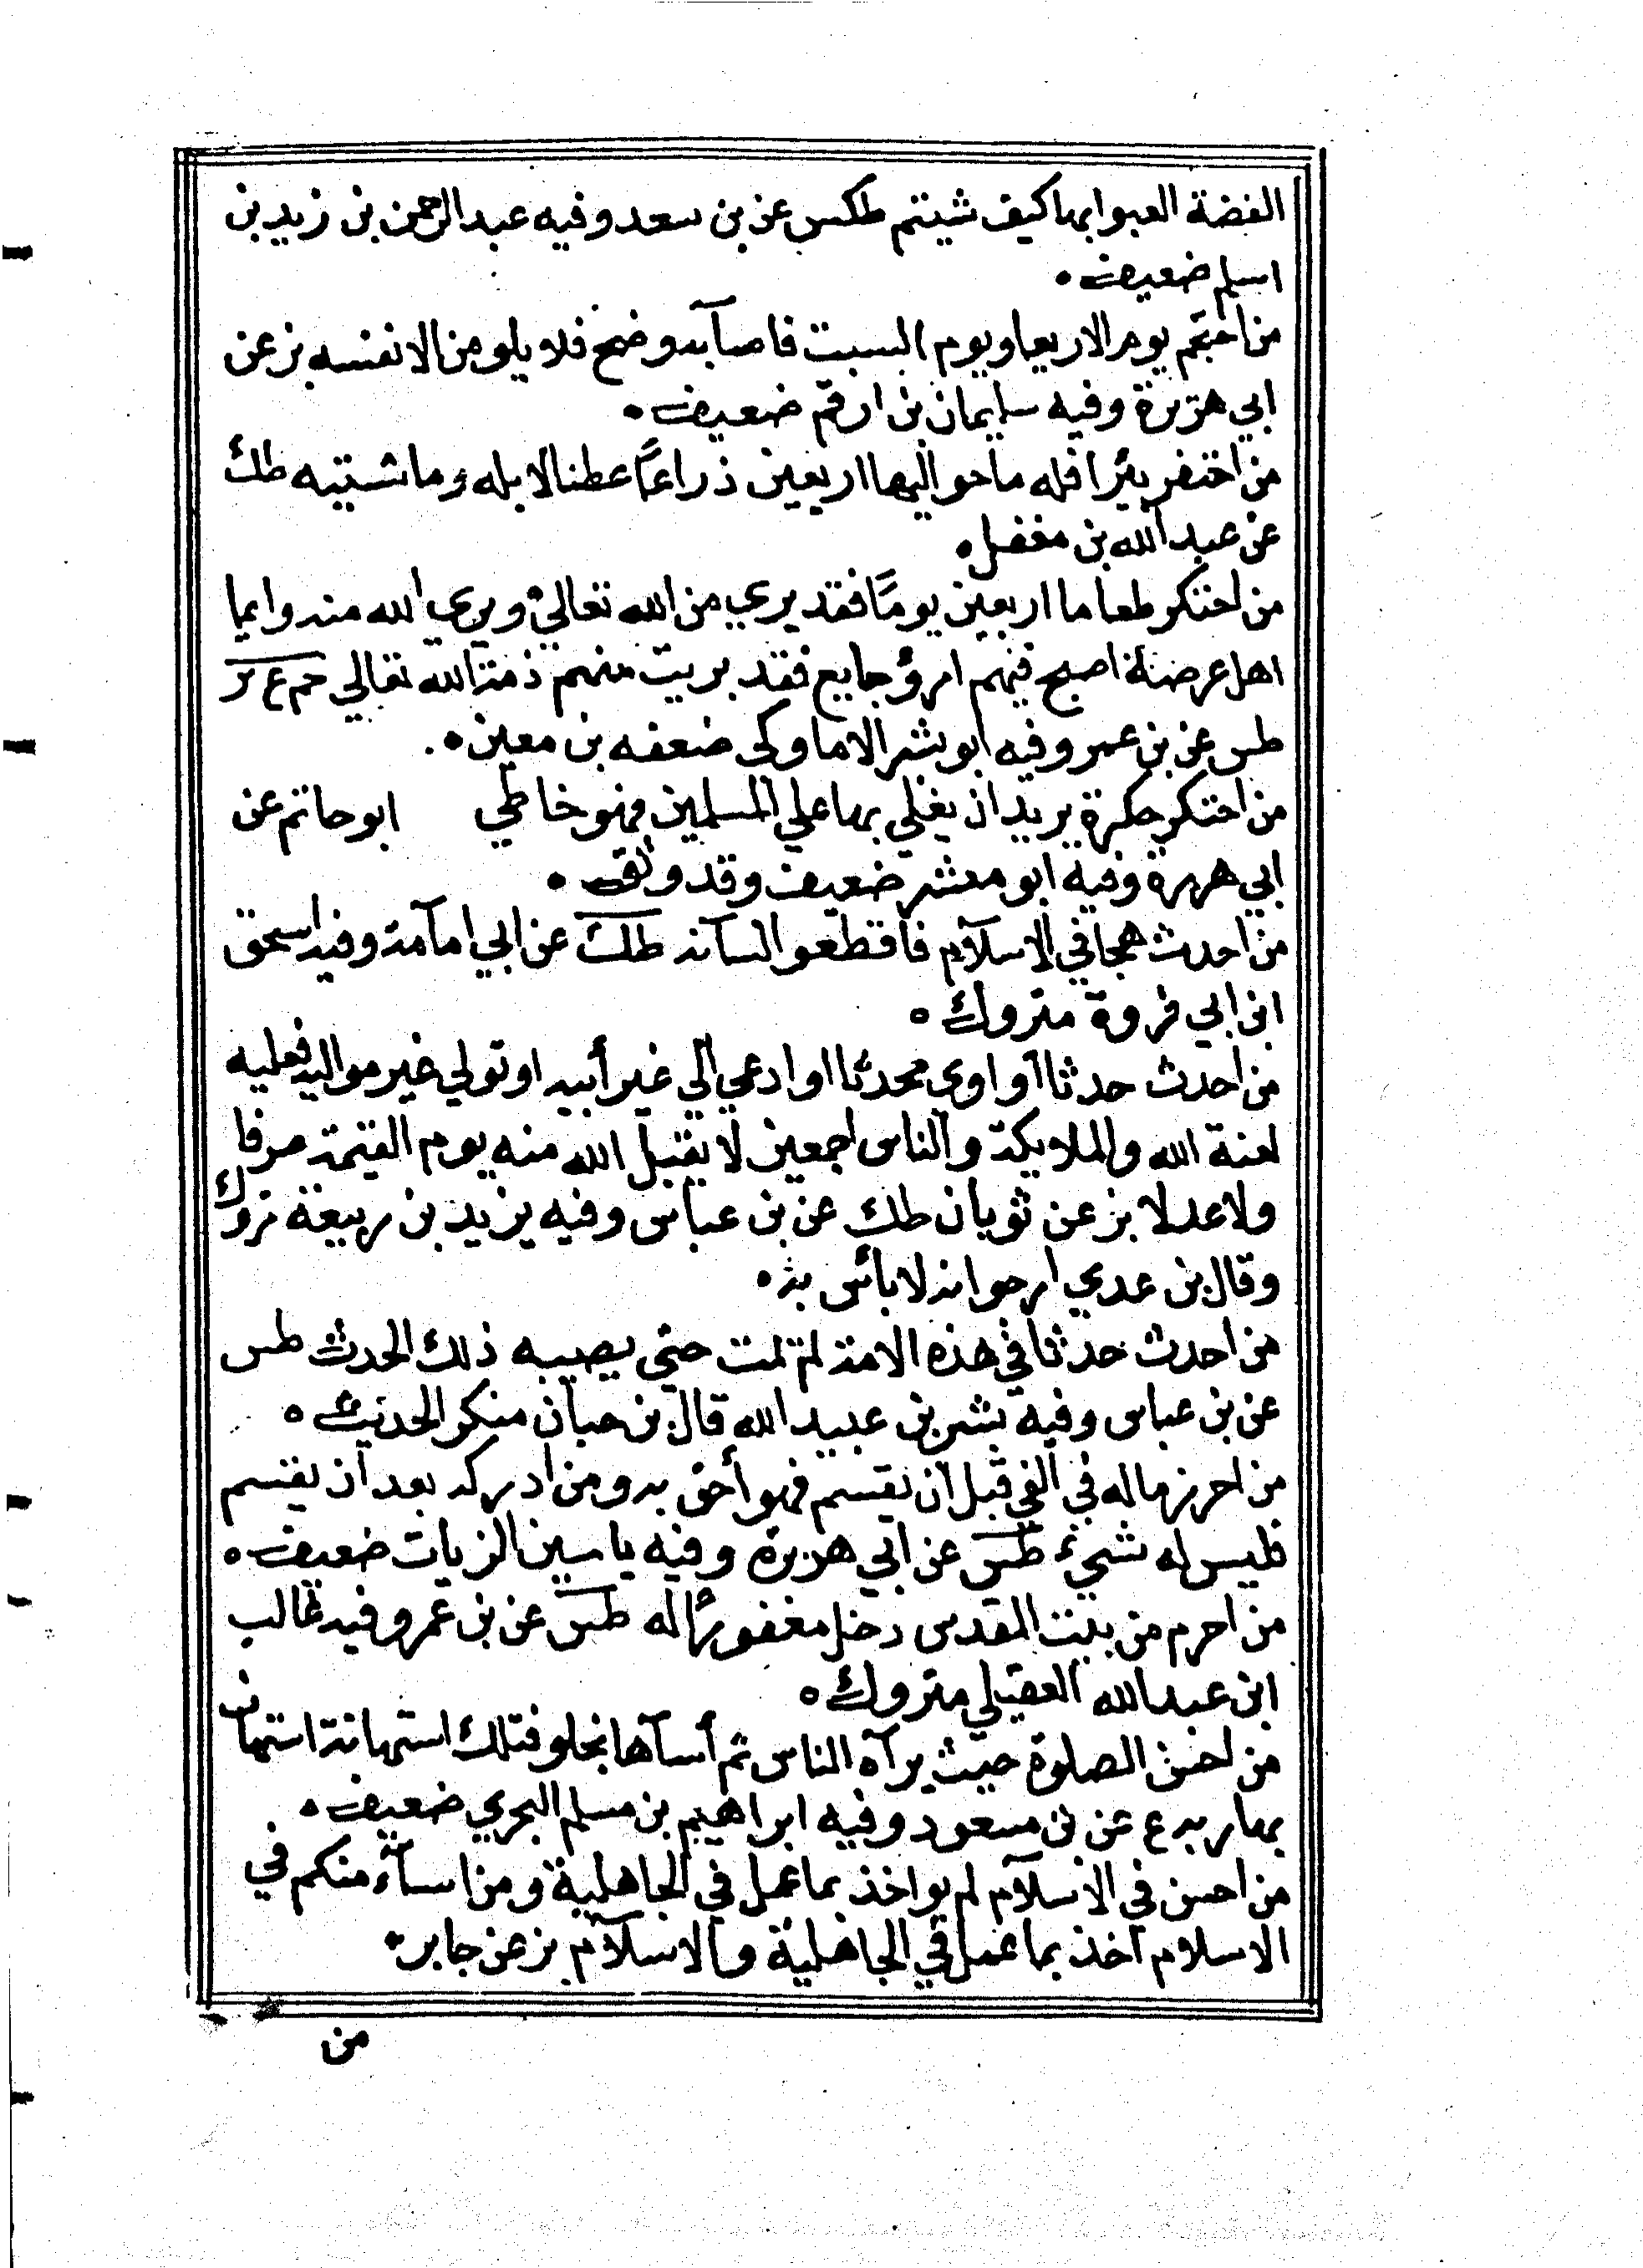 الفضة العبوا بها كيف شيتم طكس عن بن سعد وفيه عبد الرحمن بن زيد بن
اسلم ضعيف ۰
من احتجم يوم الاربعا ويوم السبت فاصآبه وضح فلا يلومن الا نفسه بز عن
ابي هريرة وفيه سليمان بن ارقم ضعيف ۰
من احتفر بئرا فله ما حواليها اربعين ذراعًا عطنا لابله وماشتيه طك
عن عبد الله بن مغفل ۰
من احتكر طعاما اربعين يومًا فقد بري من الله تعالي وبري الله منه وايما
اهل عرصة اصبح فيهم امرؤ جايع فقد بريت منهم ذمة الله تعالي حم ع بز
طس عن بن عمر وفيه ابو بشر الاملوكي ضعفه بن معين ۰
من احتكر حكرة يريد ان يغلي بها علي المسلمين فهو خاطي ابو حاتم عن
ابي هريرة وفيه ابو معشر ضعيف وقد وثق ۰
من احدث هجا في الاسلآم فاقطعوا لسآنه طك عن ابي امآمة وفيه اسحق
ابن ابي فروة متروك ۰
من احدث حدثا او اوى محدثا او ادعي الي غير أبيه او تولي غير مواليه فعليه
لعنة الله والملايكة والناس اجمعين لا يقبل الله منه يوم القيمة صرفا
ولا عدلا بز عن ثوبان طك عن بن عباس وفيه يزيد بن ربيعة تروك
وقال بن عدي ارجو انه لا بأس به ۰
من احدث حدثا في هذه الامة لم تمت حتي يصيبه ذلك الحدث طس
عن بن عباس وفيه بشر بن عبيد الله قال بن حبان منكر الحديث ۰
من احرز ماله في الفي قبل ان يقسم فهو أحق به ومن ادركه بعد ان يقسم
فليس له شيء طس عن ابي هريرة وفيه ياسين الزيات ضعيف ۰
من احرم من بيت المقدس دخل مغفورًا له طس عن بن عمر وفيه غالب
ابن عبد الله العقيلي متروك ۰
من احسن الصلوة حيث يرآه الناس ثم أسآها بخلو فتلك استهانة استهان
بها ربه ع عن بن مسعود وفيه ابراهيم بن مسلم الهجري ضعيف ۰
من احسن في الاسلآم لم يواخذ بما عمل في الجاهلية ومن اسآء منكم في
الاسلام آخذ بما عمل في الجاهلية والاسلآم بز عن جابر ۰
من